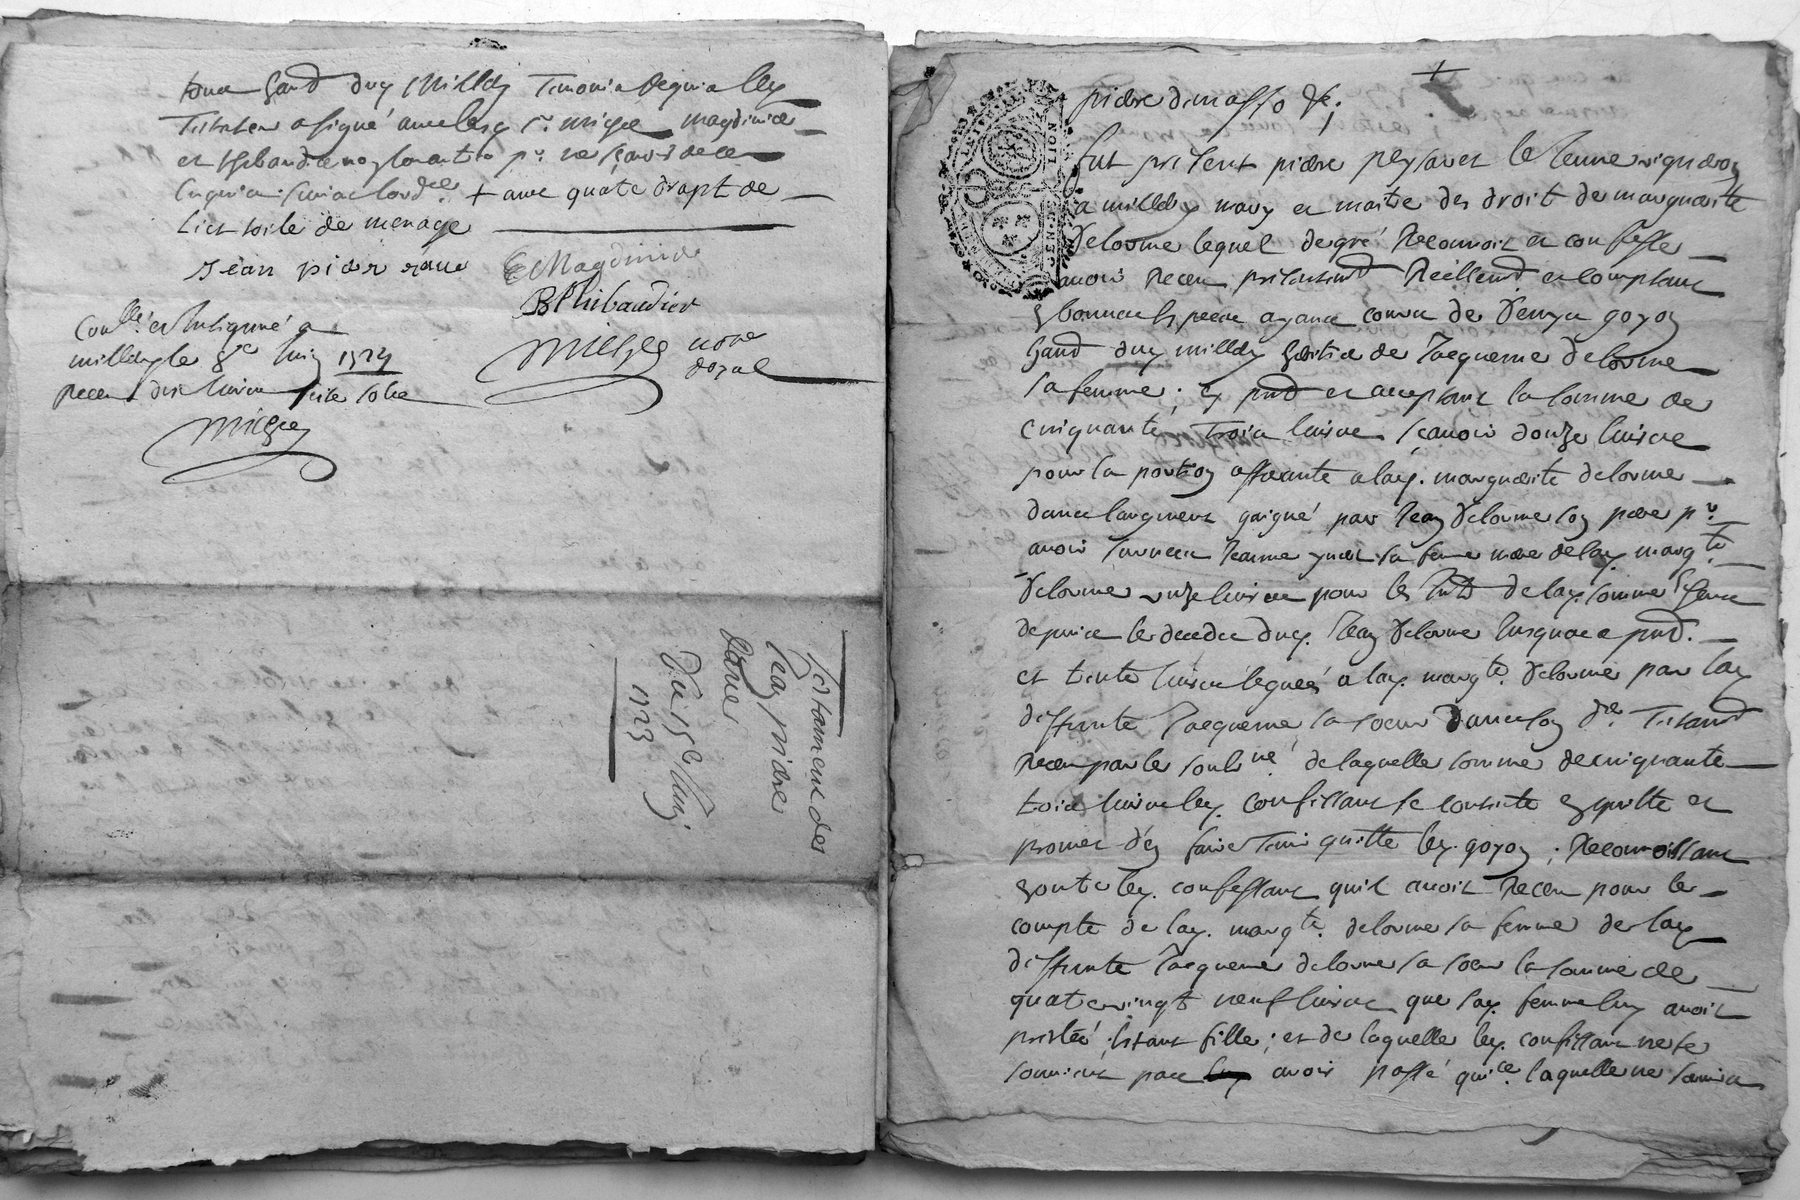 habitant dud Milléry Temoins requis led
Testateur a signé avec lesd sr. miege magdinier
et thibaudier no les autres pr. ne sçavoir de ce
Enquis suivant lord.ce + avec quatre drapt de
lict toile de menage
Jean pierre
E Magdinier
BThibaudier
miege nore
royal
Conllé et Insigniné a
millery le juin 1724
Receu dix livres
miege
testament de
Jean pierre
du 15e juin
1723
pierre
fut present pierre peysaret le Jeune vigneron
a milléry mary et maitre des droit de marguerite
delorme lequel de gré Reconnoit et confesse
avoir Receu presentemt Réellemt et comptant
en bonnes especes ayant cours de goyon
habt dud millery heritier de Jacqueme delorme
sa femme, cy pnt et acceptant la somme de
cinquante trois livres sçavoir douze livres
pour la portion afferante a lad. marguerite delorme
dans laugment gaigné par Jean delorme son pere pr.
avoir survecu Jeanne sa feme mere de lad. margte.
delorme onze livres pour les Intt de lad. somme
depuis le deces dud. Jean delorme Jusques a pnt.
et trente livres leguées a lad. margte. delorme par lad
deffunte Jacqueme sa soeur dans son der. Testamt
Receu par le soubsne de laquelle somme de cinquante
trois livres led. confessant se contente en quitte et
promet d'en faire Tenir quitte led. goyon ; Reconnoissant
en outre led. confessant quil avoit Receu pour le
compte de lad. margte. delorme sa femme de lad
deffunte Jacqueme delorme sa soeur la somme de
quatrevingt neuf livres que lad. femme luy avoit
prestée estant fille ; et de laquelle led. confessant ne se
souvient pas avoir passé quice. laquelle ne servira